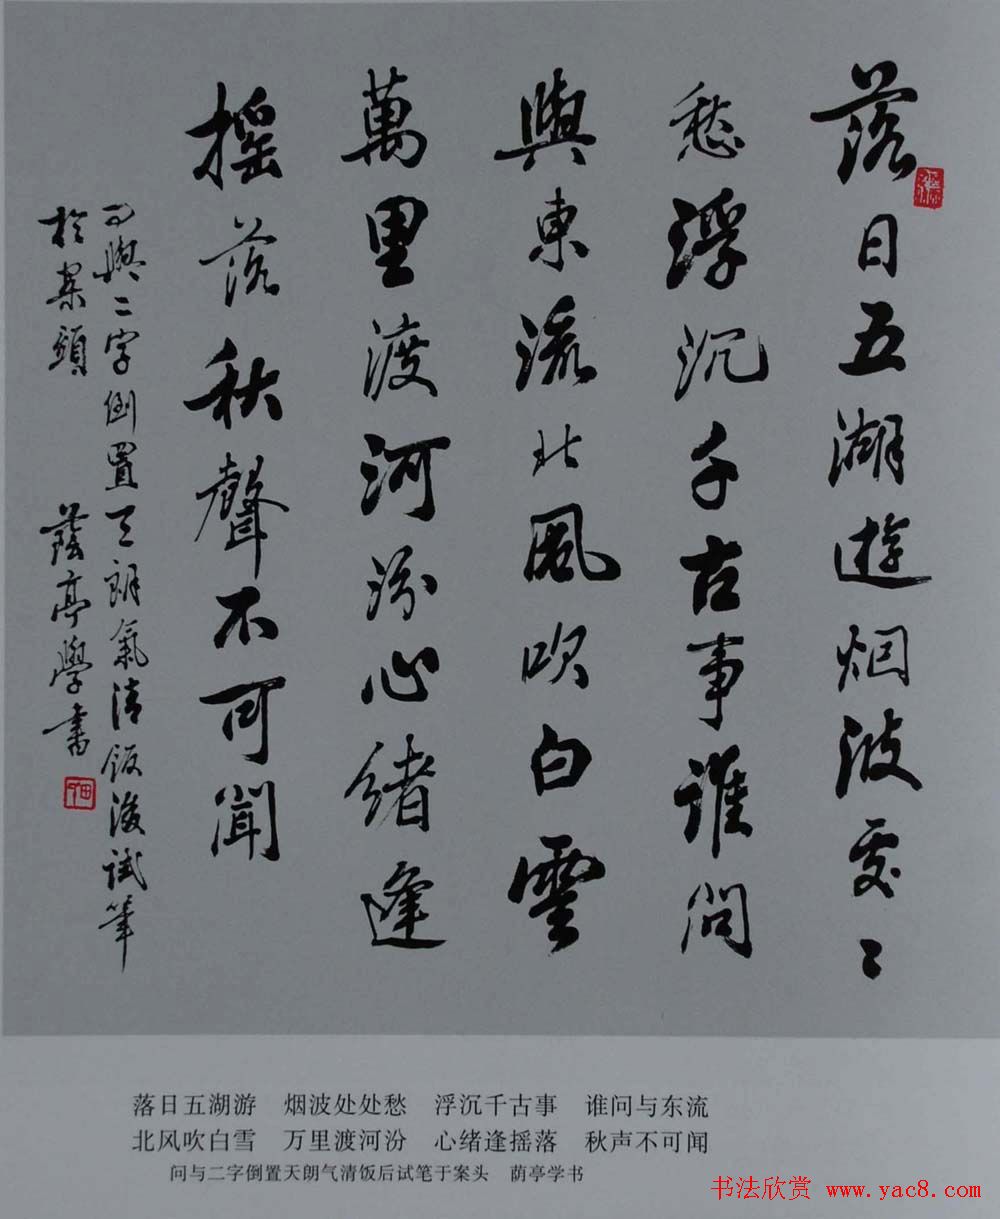 落日五湖遊烟波處〻
愁浮沉千古事誰問
與東流北風吹白雲
萬里渡河汾心緒逢
摇落秋聲不可聞
問與二字倒置天朗氣清飯後試筆
於案頭 蔭亭學書
落日五湖游 烟波处处愁 浮沉千古事 谁问与东流
北风吹白雪 万里渡河汾 心绪逢摇落 秋声不可闻
问与二字倒置天朗气清饭后试笔于案头 荫亭学书
书法欣赏 www.yac8.com